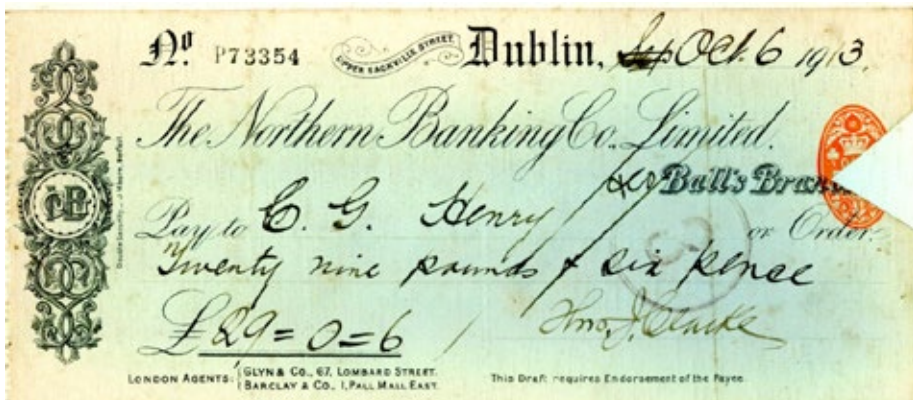 No. P73354 UPPER SACKVILLE STREET. Dublin, Sep Oct. 6 1913.
The Northern Banking Co. Limited.
& Co Ball's Bran
Pay to C. G. Henry or Order.
Twenty nine pounds & six pence
£29=0=6 Thos. J. Clarke
LONDON AGENTS: GLYN & CO., 67, LOMBARD STREET.
BARCLAY & CO., 1, PALL MALL EAST. This Draft requires Endorsement of the Payee.